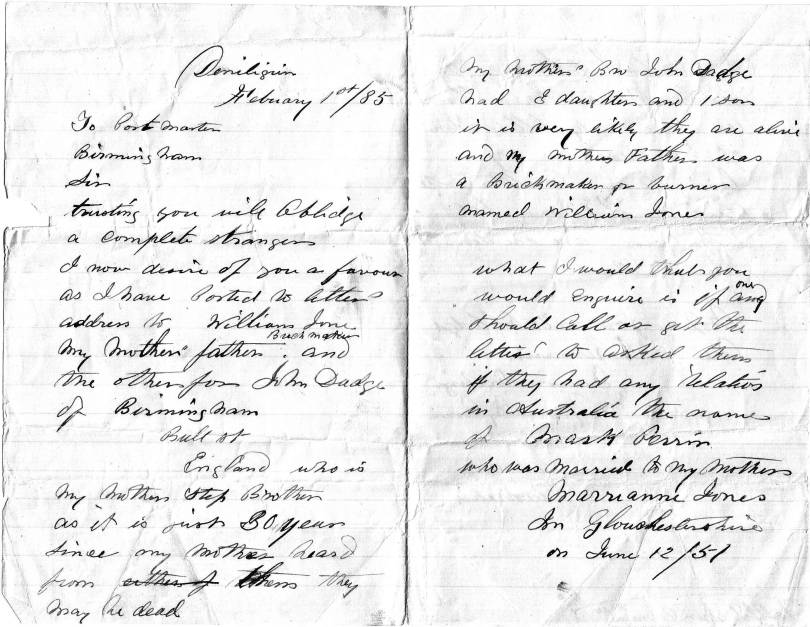 Deniliquin
February 1st/85
To Post Master
Birmingham
Sir
trusting you will Oblidge
a complete strangers
I now desire of you a favour
as I have Posted to letters
address to William Jone
Brickmaker
My Mothers father. and
the other for John Dadge
of Birmingham
Bult st
England who is
My Mothers Step Brother
as it is just 30 year
since my Mother heard
from either of thems they
may be dead
My Mothers Bro John Dadge
had 8 daughters and 1 son
it is very likely they are alive
and my mothers Father was
a Brickmaker or burner
named William Jones
what I would thats you
would Enquire is if any one
should Call or get the
letters to asked them
if they had any relatios
in Australia the name
of Mark Perrin
who was Married to my Mothers
Marrianne Jones
In Glouchestershire
on June 12/51